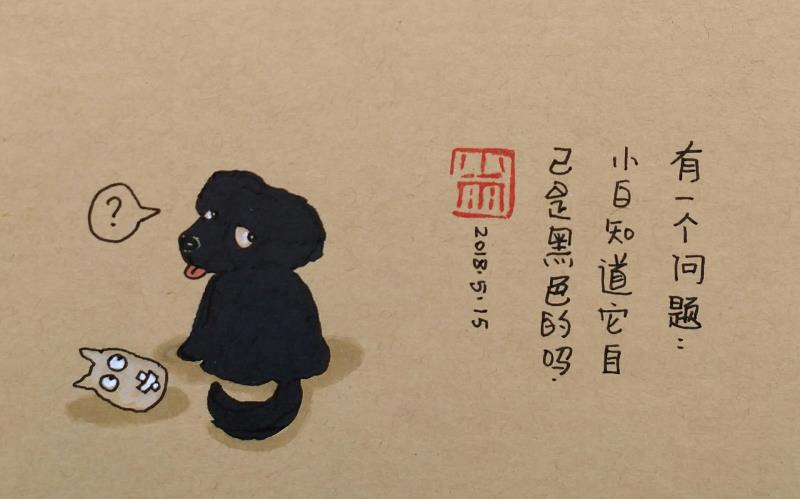 有一个问题:
小白知道它自
己是黑色的吗.
2018.5.15
?